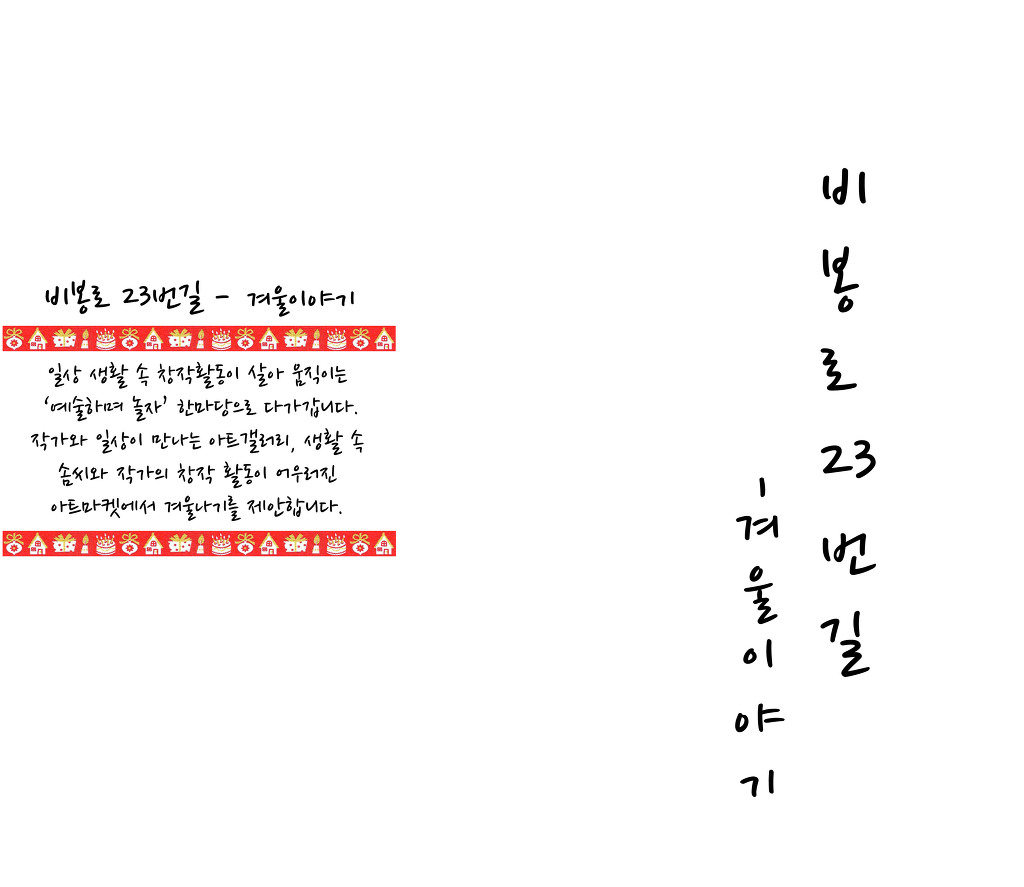 비봉로 23번길 - 겨울이야기
일상 생활 속 창작활동이 살아 움직이는
‘예술하며 놀자’ 한마당으로 다가갑니다.
작가와 일상이 만나는 아트갤러리, 생활 속
솜씨와 작가의 창작 활동이 어우러진
아트마켓에서 겨울나기를 제안합니다.
비봉로 23번길
- 겨울이야기